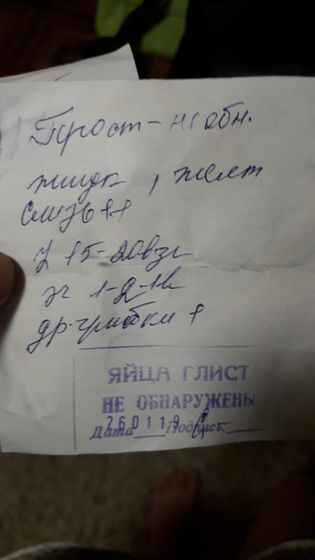 Прост - н/обн.
жидк, желт
слизь ++
L 15-20 в п/з
эр 1-2-1
др. грибки +
ЯЙЦА ГЛИСТ
НЕ ОБНАРУЖЕНЫ
260119
Дата Подпись